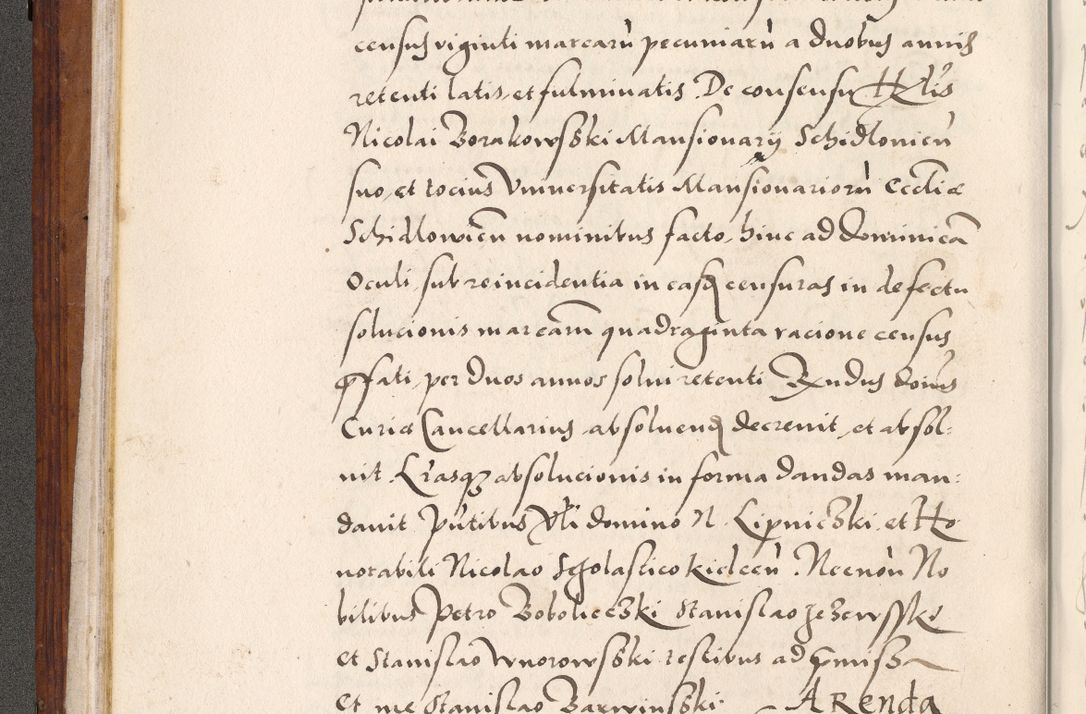 census viginti marcarũ pecuniarũ a duobus annis
retenti latis et fulminatis. De consensu Hᷤlis
Nicolai Borakowsski Mansionarij Schidlovien̄
suo, et tocius Universitatis Mansionariorũ Ecclīæ
Schidlovien̄ nominibus facto, hinc ad dominicā
Oculi, sub reincidentia in easdē censuras in defectu
solucionis marcarū quadraginta racione census
p̄fati, per duos annos solui retenti Rn̄dus domīnus
Curiæ Cancellarius absoluendū decreuit, et absol:
uit. Lr̄asq₃ absolucionis in forma dandas man:
dauit. Pn̄tibus Vn̄li domino N. Lipniczki, et Ho
norabili Nicolao Scolastico Kielceñ. Necnon No
bilibus Petro Boboliczki Stanislao Jezewsski
et Stanislao Wnorowsski testibus ad p̄missa
et me Stanislao Barwinsski. Arenda